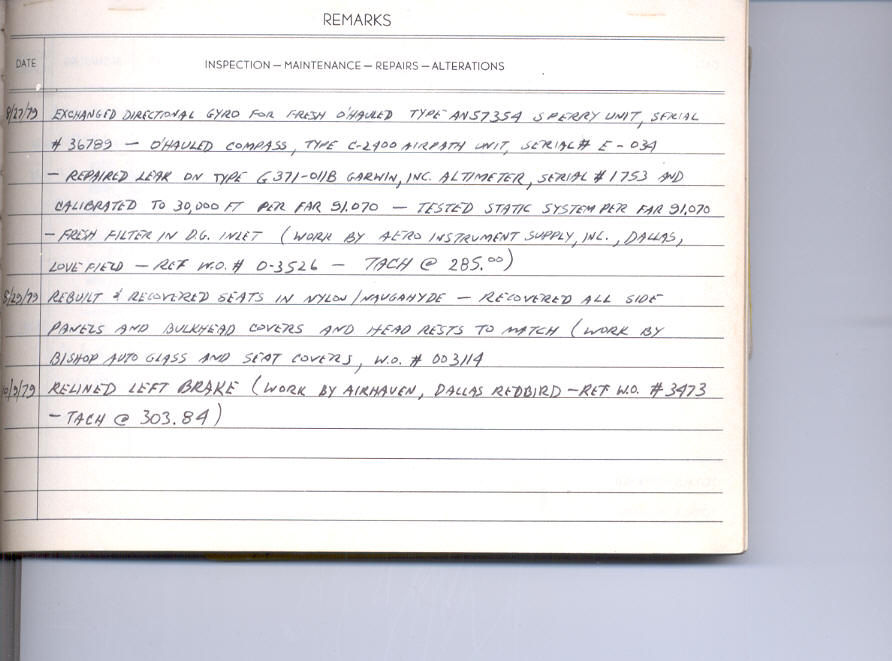 REMARKS
DATE INSPECTION — MAINTENANCE — REPAIRS — ALTERATIONS
8/27/79 EXCHANGED DIRECTIONAL GYRO FOR FRESH O'HAULED TYPE AN57354 SPERRY UNIT, SERIAL
# 36789 — O'HAULED COMPASS, TYPE C-2400 AIRPATH UNIT, SERIAL # E-034
— REPAIRED LEAK ON TYPE G371-011B GARWIN, INC. ALTIMETER, SERIAL # 1753 AND
CALIBRATED TO 30,000 FT PER FAR 91.070 — TESTED STATIC SYSTEM PER FAR 91.070
— FRESH FILTER IN D.G. INLET (WORK BY AERO INSTRUMENT SUPPLY, INC., DALLAS,
LOVE FIELD — REF W.O. # D-3526 — TACH @ 285.00)
8/29/79 REBUILT & RECOVERED SEATS IN NYLON/NAUGAHYDE — RECOVERED ALL SIDE
PANELS AND BULKHEAD COVERS AND HEAD RESTS TO MATCH (WORK BY
BISHOP AUTO GLASS AND SEAT COVERS, W.O. # 003114
10/9/79 RELINED LEFT BRAKE (WORK BY AIRHAVEN, DALLAS REDBIRD — REF W.O. # 3473
— TACH @ 303.84)